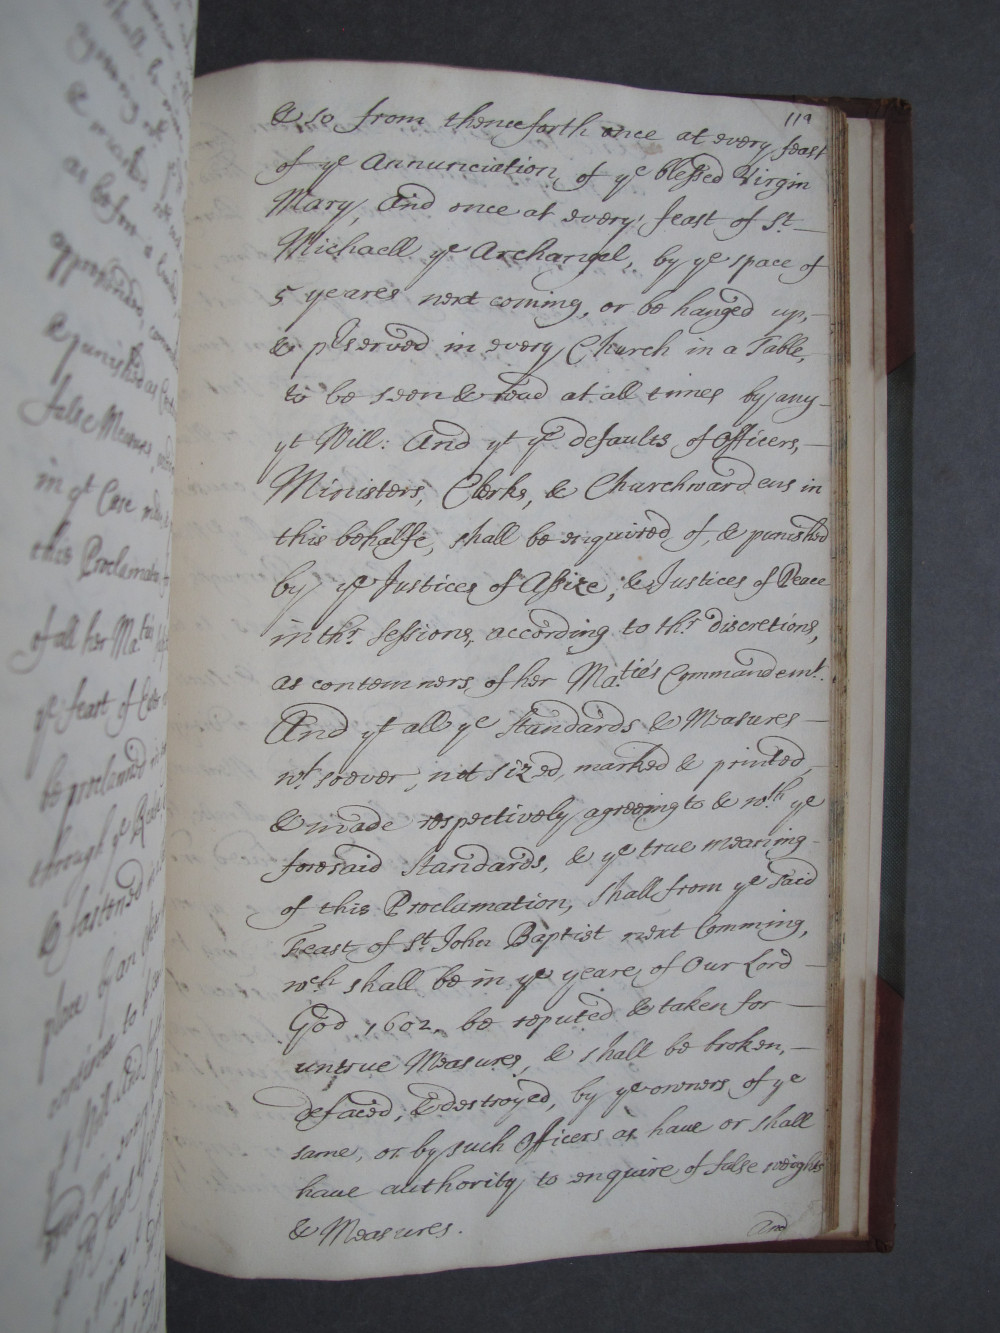 119
& so from thenceforth once at every feast
of ye Annunciation of ye blessed Virgin
Mary, And once at every feast of St
Michaell ye Archangel, by ye space of
5 yeares next coming, or be hanged up,
& pserved in every Church in a Table,
to be seen & read at all times by any
yt Will: And yt ye defaults of Officers,
Ministers, Clerks, & Churchwardens in
this behalfe, shall be enquired of, & punished
by ye Justices of Assize, & Justices of Peace
in thr Sessions, according to thr discretions,
as contemners of her Ma.ties Commandemt.
And yt all ye Standards & Measures
wtsoever, not sized, marked & printed,
& made respectively agreeing to & wth ye
foresaid Standards, & ye true meaning
of this Proclamation, shall from ye said
Feast of St John Baptist next Comming,
wch shall be in ye yeare of Our Lord
God 1602. be reputed & taken for
untrue Measures, & shall be broken,
defaced, & destroyed, by ye owners of ye
same, or by such Officers as have or shall
have authority to enquire of false weights
& Measures.
And
false Measures
this Proclamato
of all her Ma.ties
ye feast of
be proclaimed
through ye
& fastened
place by an